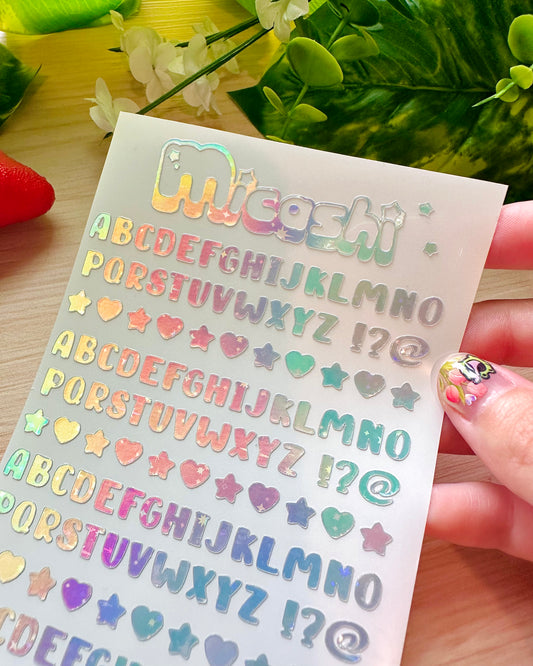 Micgshi
ABCDEFGHIJKLMNO
PQRSTUVWXYZ !?@
ABCDEFGHIJKLMNO
PQRSTUVWXYZ !?@
ABCDEFGHIJKLMNO
PQRSTUVWXYZ !?@
CDEFGHIJKLMNO